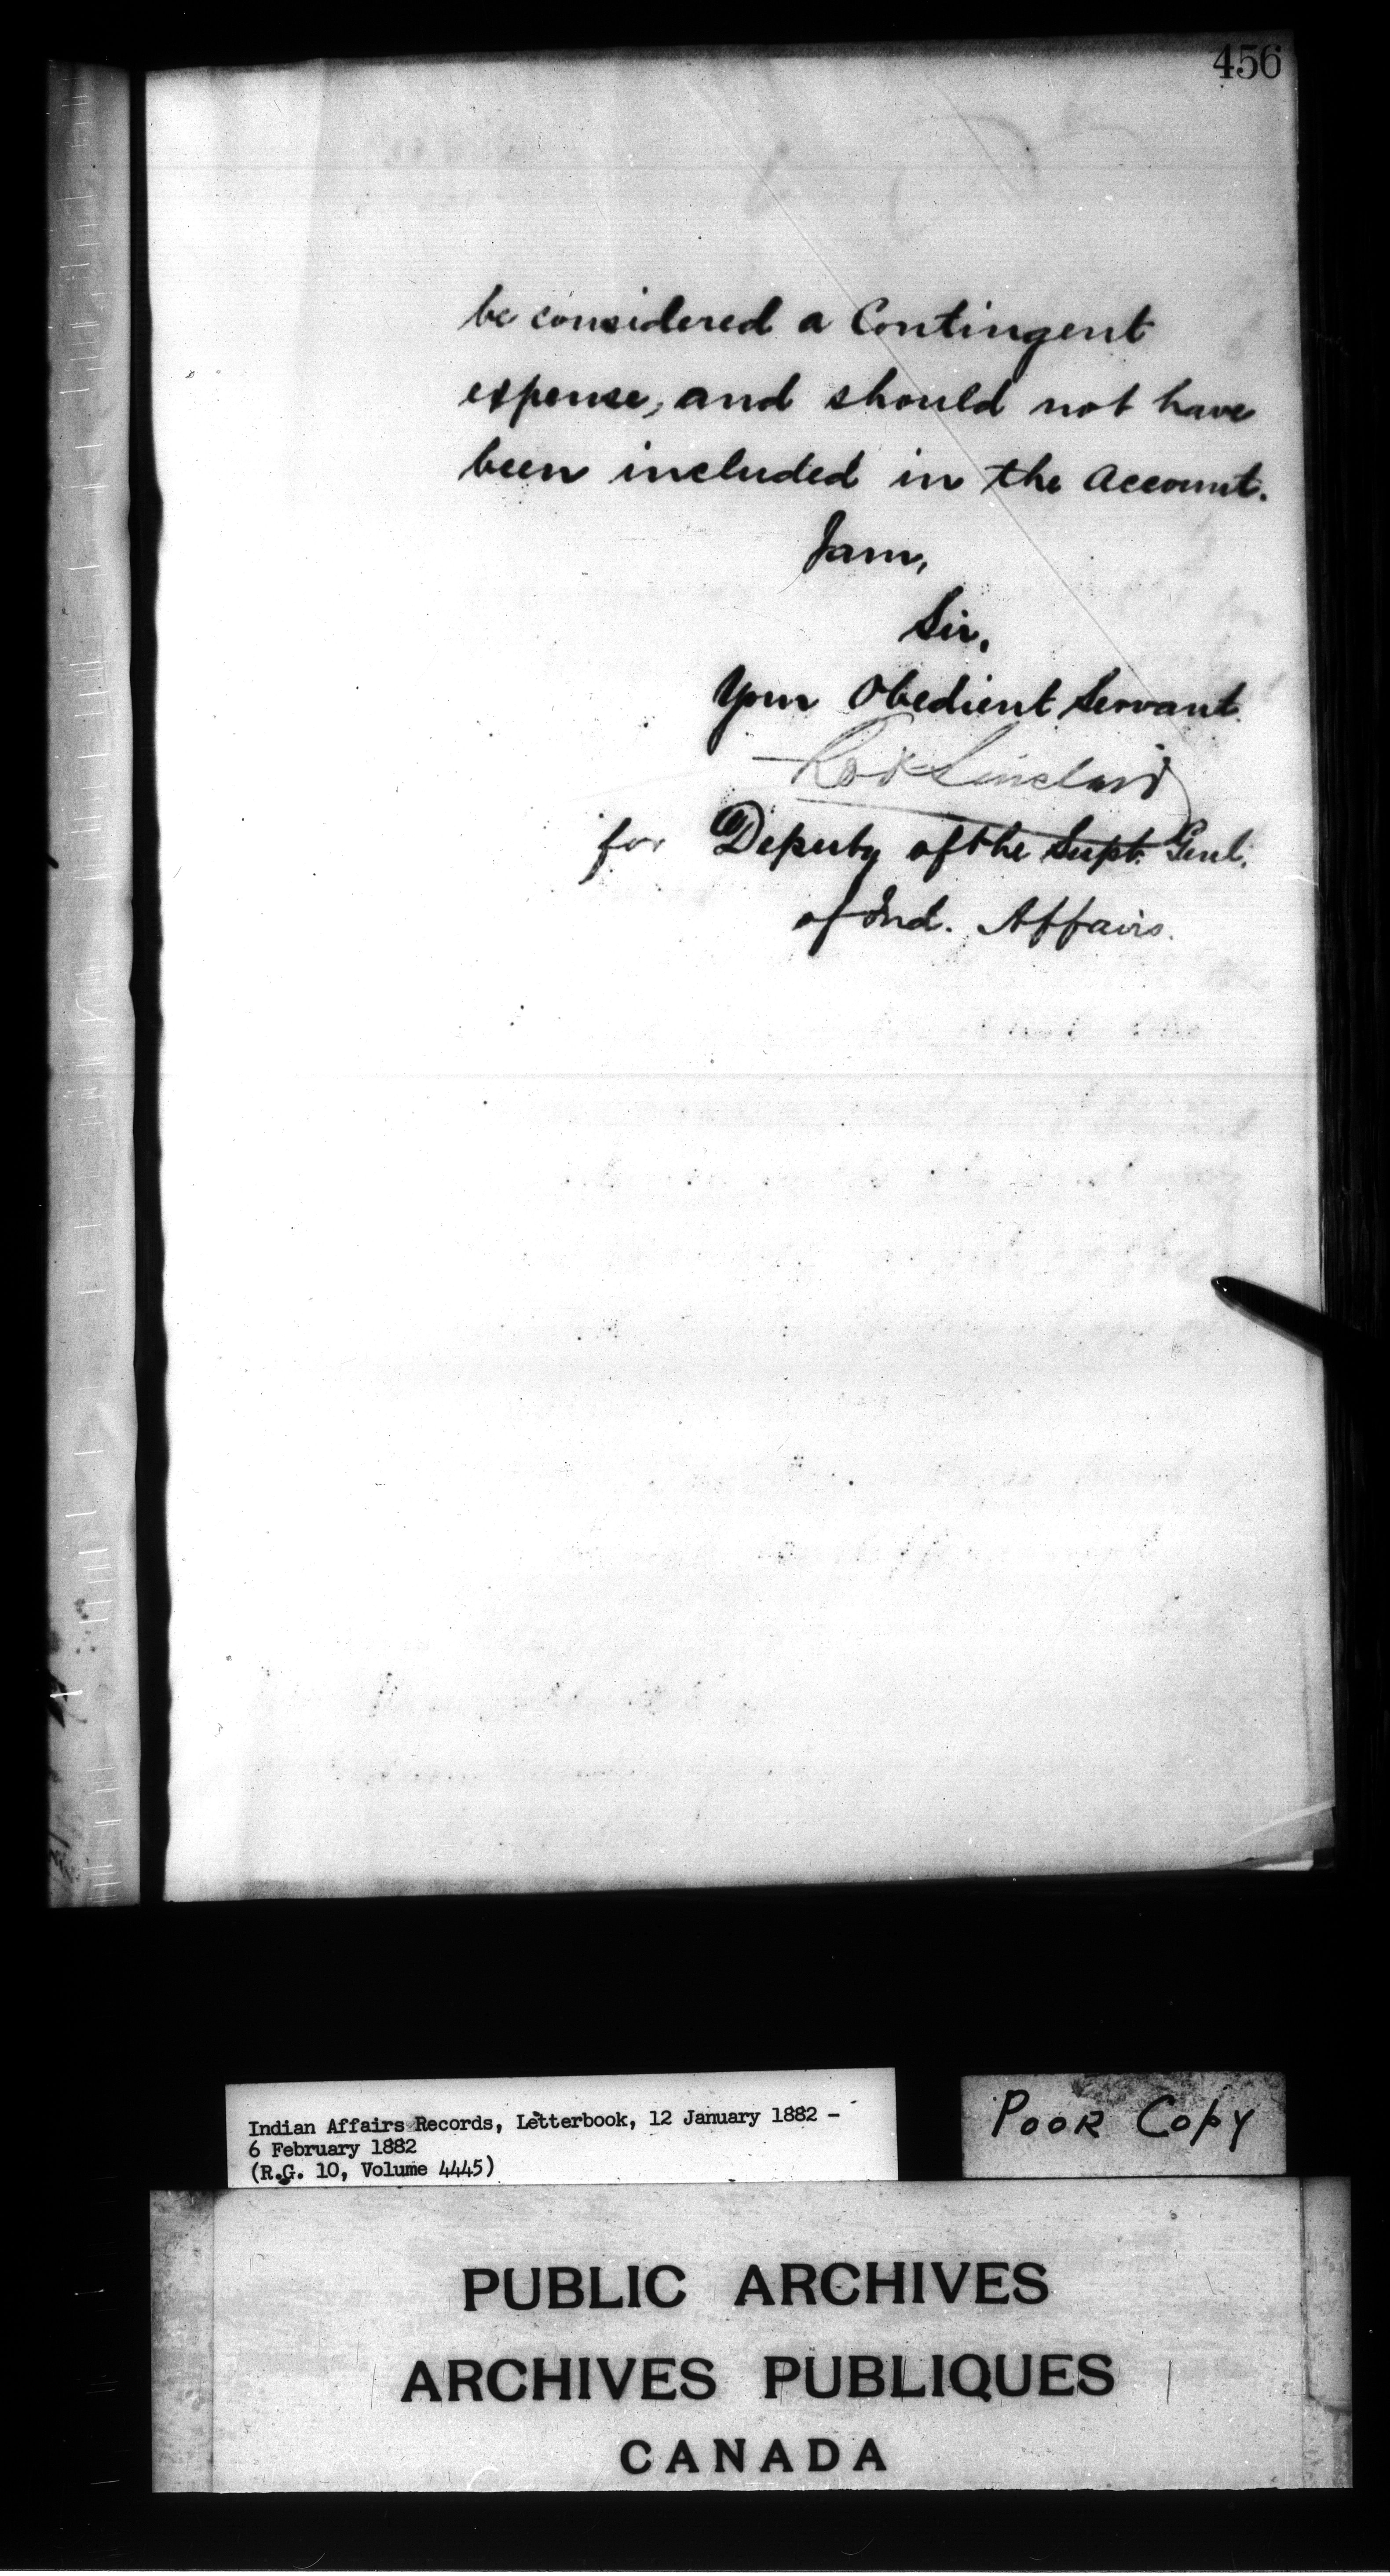 456
be considered a Contingent
expense, and should not have
been included in the Account.
I am,
Sir,
Your Obedient Servant.
Robt Sinclair
for Deputy of the Supt. Genl.
of Ind. Affairs.
Indian Affairs Records, Letterbook, 12 January 1882 -
6 February 1882
(R.G. 10, Volume 4445)
POOR COPY
PUBLIC ARCHIVES
ARCHIVES PUBLIQUES
CANADA